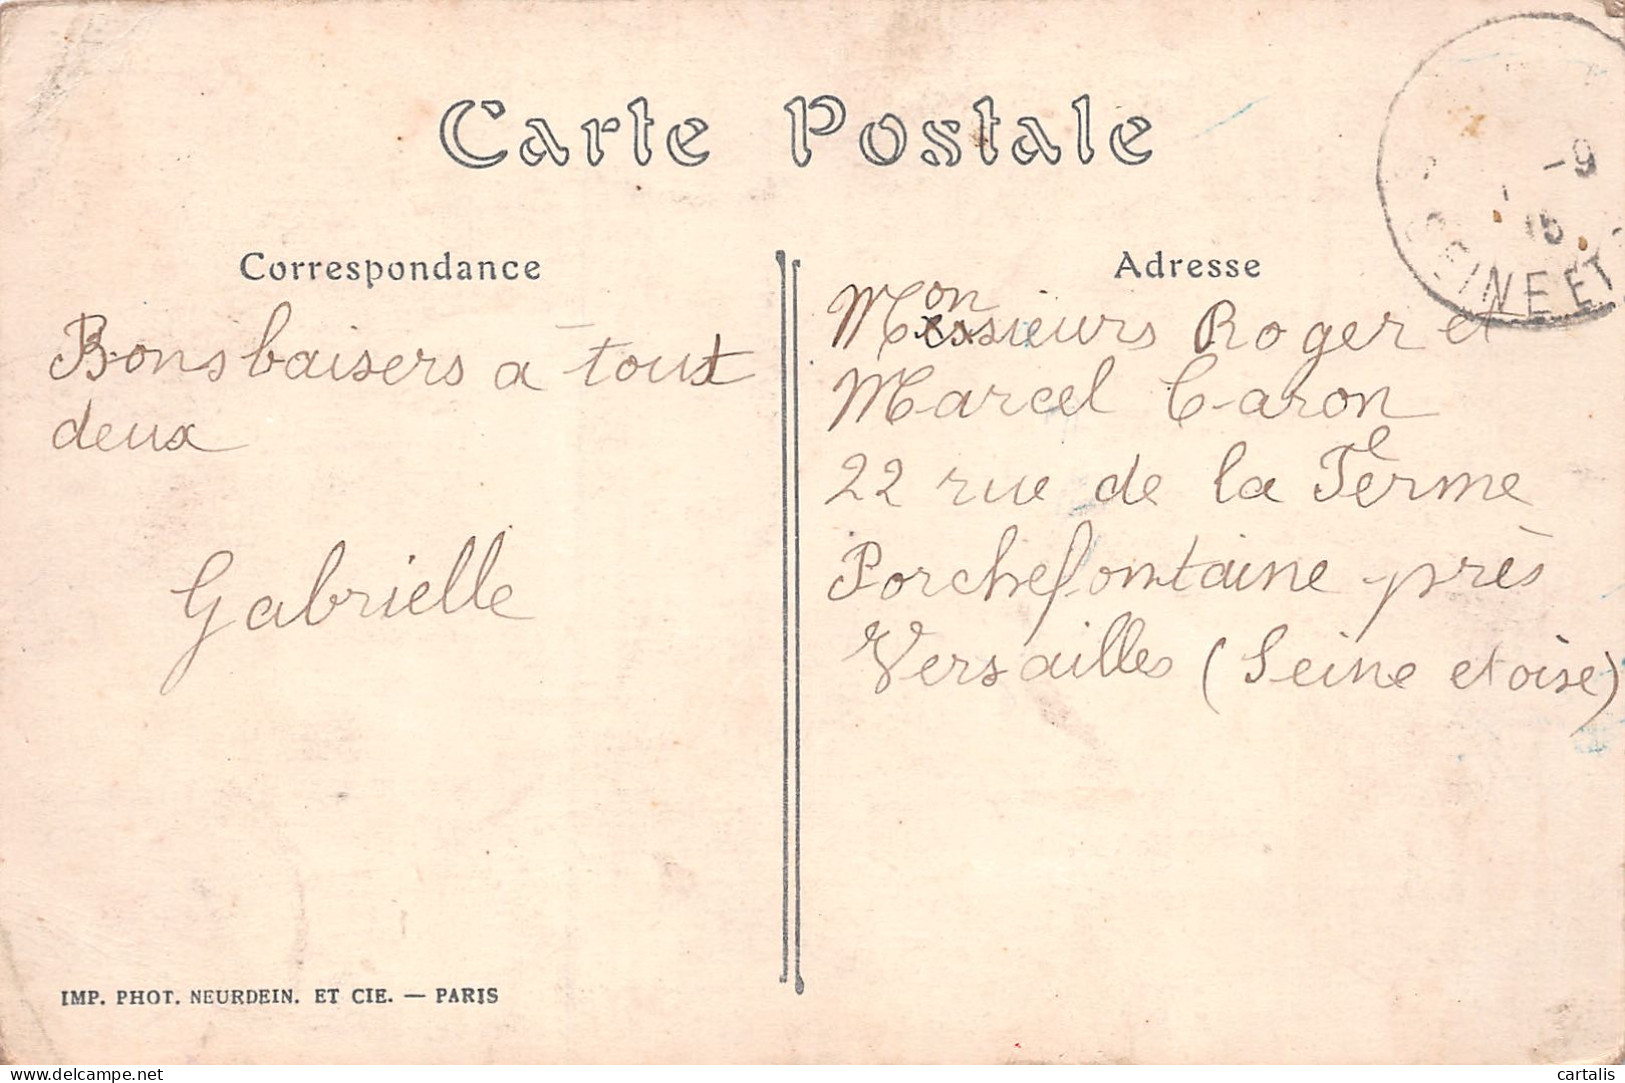 Carte Postale
Correspondance
Bons baisers à tous
deux
Gabrielle
IMP. PHOT. NEURDEIN. ET CIE. — PARIS
Adresse
Monsieurs Roger et
Marcel Caron
22 rue de la Ferme
Porchefontaine près
Versailles (Seine et oise)
-9
15
SEINE ET
delcampe.net
cartalis